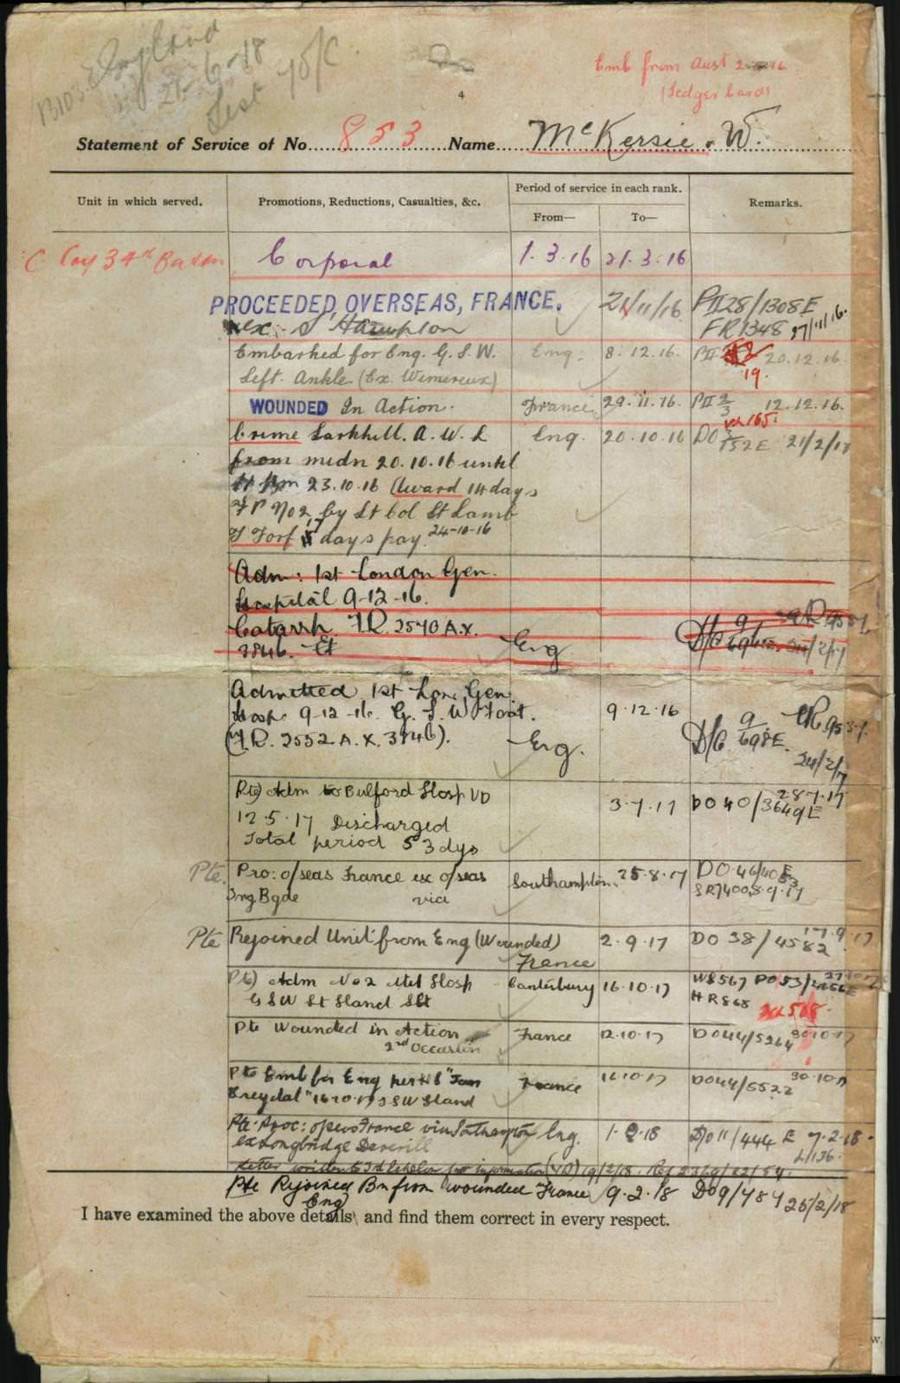 England
21-6-18
Emb from Aust 2-5-16
(Ledger Card)
4
Statement of Service of No. 853 Name McKersie. W.
Unit in which served. Promotions, Reductions, Casualties, &c. Period of service in each rank. Remarks.
From— To—
C Coy 34th Battn Corporal 1.3.16 21.3.16
PROCEEDED OVERSEAS, FRANCE. 21/11/16 PII28/1308E
ex. S'Hampton FR1348 27/11/16.
Embarked for Eng. G.S.W. Eng. 8.12.16. 20.12.16.
Left. Ankle (Ex Wimereux) 19.
WOUNDED In Action. France 29.11.16. PII 2/3 12.12.16.
Crime Larkhill. A.W.L Eng. 20.10.16 DO 152E 21/2/17
from midn 20.10.16 until
23.10.16 Award 14 days
F P No 2 by Lt Col St Lamb
T Forf 17 days pay. 24-10-16
Adm: 1st London Gen.
Hospital 9-12-16.
Catarrh. F.R. 2540 A.X.
3846. Eng
Admitted 1st Lon. Gen.
Hosp 9-12-16. G.S.W. Foot. 9.12.16
(F.R. 2552 A.X. 3846). Eng. 698E.
24/2/17
Pte) Adm to Bulford Hosp VD 3.7.17 DO 40/3649E 28.7.17
12.5.17 Discharged
Total period 53 dys
Pte. Pro: o/seas France ex o/seas Southampton. 25.8.17 DO 46/40E
Trng Bgde vice
Pte Rejoined Unit from Eng (Wounded) 2.9.17 DO 38/4582 17.9.17
France
Pte) Adm No 2 Mil Hosp Canterbury 16.10.17 W8567 DO 53/
G S W Lt Hand Slt HR868
Pte Wounded in Action France 12.10.17 DO44/5264 30.10.17
2nd Occasion
Pte Emb for Eng per HS "Jan France 16.10.17 DO44/5522 30.10.17
Breydal" 16.10.17 G S W Hand
Pte Proc: o/seas France via Sthampton Eng. 1.2.18 DO 11/444 E 7.2.18.
ex Longbridge Deverill L/136.
Letter written to for information (VD) 19/2/18.
Pte Rejoined Bn from wounded France 9.2.18 DO9/784 25/2/18
Eng
I have examined the above details and find them correct in every respect.